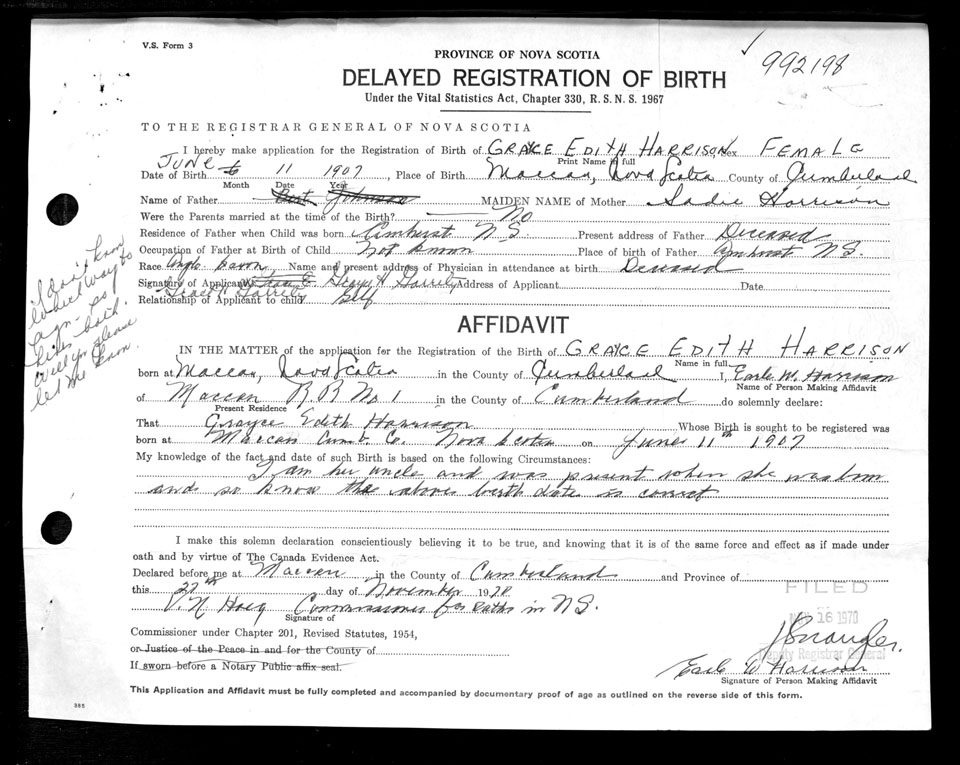 V.S. Form 3
992198
PROVINCE OF NOVA SCOTIA
DELAYED REGISTRATION OF BIRTH
Under the Vital Statistics Act, Chapter 330, R.S.N.S. 1967
TO THE REGISTRAR GENERAL OF NOVA SCOTIA
I hereby make application for the Registration of Birth of GRAYCE EDITH HARRISON Sex FEMALE
Print Name in full
Date of Birth JUNE 11 1907, Place of Birth Maccan, Nova Scotia County of Cumberland
Month Date Year
Name of Father Johnson MAIDEN NAME of Mother Sadie Harrison
Were the Parents married at the time of the Birth? No
Residence of Father when Child was born Amherst N S Present address of Father Deceased
Occupation of Father at Birth of Child not known Place of birth of Father Amherst N.S.
Race Anglo Saxon, Name and present address of Physician in attendance at birth Deceased
Signature of Applicant Address of Applicant Date
Relationship of Applicant to child Self
I don't know
what way to
sign - so
lines both
Will you please
let me know.
AFFIDAVIT
IN THE MATTER of the application for the Registration of the Birth of GRAYCE EDITH HARRISON
Name in full
born at Maccan, Nova Scotia in the County of Cumberland I, Earle W. Harrison
Name of Person Making Affidavit
of Maccan R.R No. 1 in the County of Cumberland do solemnly declare:
Present Residence
That Grayce Edith Harrison Whose Birth is sought to be registered was
born at Maccan Cumb. Co. Nova Scotia on June 11th 1907
My knowledge of the fact and date of such Birth is based on the following Circumstances:
I am her uncle and was present when she was born
and so know the above birth date is correct
I make this solemn declaration conscientiously believing it to be true, and knowing that it is of the same force and effect as if made under
oath and by virtue of The Canada Evidence Act.
Declared before me at Maccan in the County of Cumberland and Province of
this 27th day of November 1970
FILED
16 1970
V. N Hoeg Commissioner for oaths in N S.
Signature of
Commissioner under Chapter 201, Revised Statutes, 1954,
or Justice of the Peace in and for the County of
Deputy Registrar General
If sworn before a Notary Public affix seal.
Earle W Harrison
Signature of Person Making Affidavit
This Application and Affidavit must be fully completed and accompanied by documentary proof of age as outlined on the reverse side of this form.
385